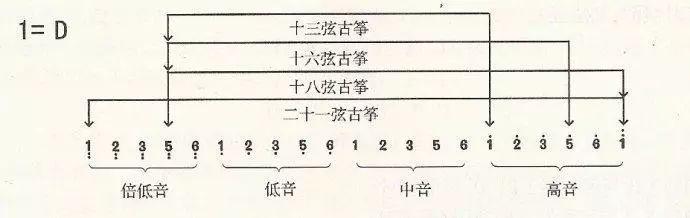 1= D
十三弦古筝
十六弦古筝
十八弦古筝
二十一弦古筝
1̤ 2̤ 3̤ 5̤ 6̤ 1̣ 2̣ 3̣ 5̣ 6̣ 1 2 3 5 6 1̇ 2̇ 3̇ 5̇ 6̇ 1̈
倍低音 低音 中音 高音